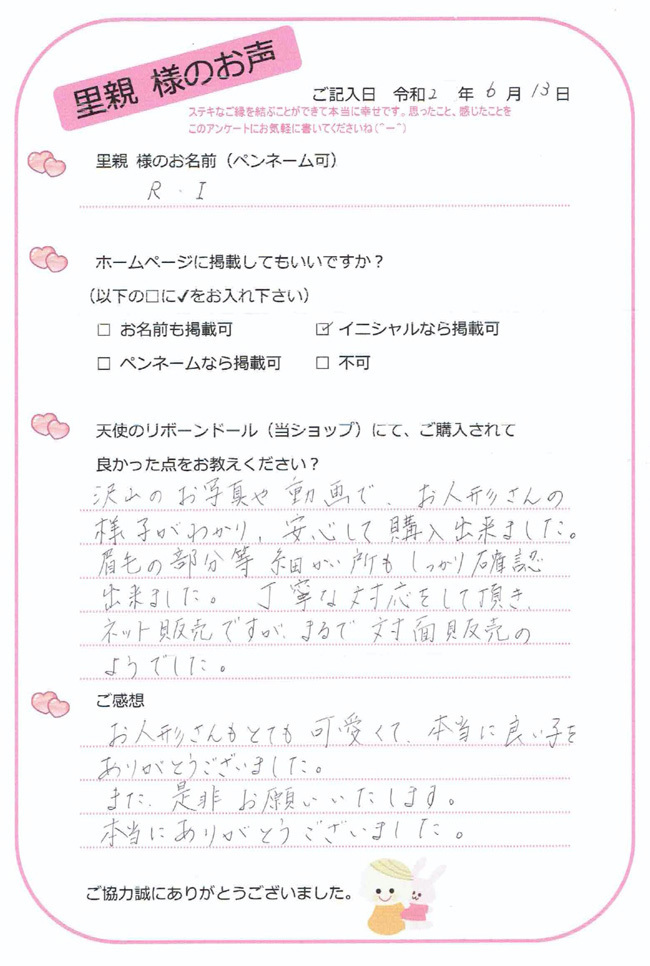 里親 様のお声
ご記入日 令和2 年 6 月 13 日
ステキなご縁を結ぶことができて本当に幸せです。思ったこと、感じたことを
このアンケートにお気軽に書いてくださいね(^ー^)
里親 様のお名前（ペンネーム可）
R・I
ホームページに掲載してもいいですか？
（以下の□に✓をお入れ下さい）
□ お名前も掲載可 ☑ イニシャルなら掲載可
□ ペンネームなら掲載可 □ 不可
天使のリボーンドール（当ショップ）にて、ご購入されて
良かった点をお教えください？
沢山のお写真や動画で、お人形さんの
様子がわかり、安心して購入出来ました。
眉毛の部分等 細かい所もしっかり確認
出来ました。 丁寧な対応をして頂き、
ネット販売ですが、まるで対面販売の
ようでした。
ご感想
お人形さんもとても可愛くて、本当に良い子を
ありがとうございました。
また、是非お願いいたします。
本当にありがとうございました。
ご協力誠にありがとうございました。